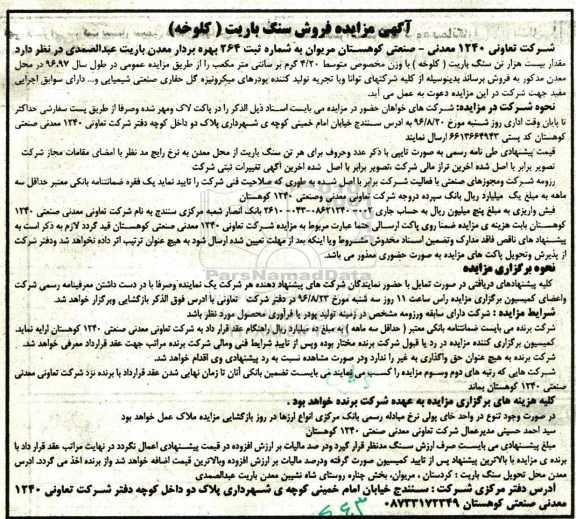 آگهی مزایده فروش سنگ باریت ( کلوخه)
شرکت تعاونی ۱۲۴۰ معدنی - صنعتی کوهستان مریوان به شماره ثبت ۲۶۴ بهره بردار معدن باریت عبدالصمدی در نظر دارد
مقدار بیست هزار تن سنگ باریت ( کلوخه ) با وزن مخصوص متوسط ۴/۲۰ گرم بر سانتی متر مکعب را از طریق مزایده عمومی در طول سال ۹۶،۹۷ در محل
معدن مذکور به فروش برساند بدینوسیله از کلیه شرکتهای توانا وبا تجربه تولید کننده پودرهای میکرونیزه گل حفاری صنعتی شیمیایی و... دارای سوابق اجرایی
مفید جهت شرکت در این مزایده دعوت به عمل می آید.
نحوه شرکت در مزایده: شرکت های خواهان حضور در مزایده می بایست اسناد ذیل الذکر را در پاکت لاک ومهر شده وصرفا از طریق پست سفارشی حداکثر
تا پایان وقت اداری روز شنبه مورخ ۹۶/۸/۲۰ به ادرس سنندج خیابان امام خمینی کوچه ی شهرداری پلاک دو داخل کوچه دفتر شرکت تعاونی ۱۲۴۰ معدنی صنعتی
کوهستان کد پستی ۶۶۱۳۶۶۴۹۴۳ ارسال نمایند
قیمت پیشنهادی طی نامه رسمی به صورت تایپی با ذکر عدد وحروف برای هر تن سنگ باریت از محل معدن به نرخ رایج مد نظر با امضای مقامات مجاز شرکت
تصویر برابر با اصل شده اخرین تراز مالی شرکت ،تصویر برابر با اصل شده اخرین آگهی تغییرات ثبتی شرکت
رزومه شرکت ومجوزهای صنعتی یا فعالیت شرکت برابر با اصل شده به طوری که صلاحیت فنی شرکت را تایید نماید یک فقره ضمانتنامه بانکی معتبر حداقل سه
ماهه به مبلغ یک میلیارد ریال بانک سپرده دروجه شرکت تعاونی معدنی وصنعتی ۱۲۴۰ کوهستان
فیش واریزی به مبلغ پنج میلیون ریال به حساب جاری بانک انصار شعبه مرکزی سنندج به نام شرکت تعاونی معدنی صنعتی ۱۲۴۰
کوهستان بابت هزینه ی مزایده ضمنا روی پاکت ارسالی حتما عبارت مربوط به مزایده شرکت تعاونی ۱۲۴۰ معدنی صنعتی کوهستان قید گردد لازم به ذکر است به
پیشنهاد های ناقص فاقد مدارک وتضمین اسناد مخدوش مشروط ویا اینکه بعد از مهلت تعیین شده ارسال شود به هیچ عنوان ترتیب اثر داده نخواهد شد ودفتر شرکت
از پذیرش وتحویل پاکت های مزایده به صورت حضوری معذور می باشد.
نحوه برگزاری مزایده
کلیه پیشنهادهای دریافتی در صورت تمایل با حضور نمایندگان شرکت های پیشنهاد دهنده هر شرکت یک نماینده وصرفا با در دست داشتن معرفینامه رسمی شرکت
واعضای کمیسیون برگزاری مزایده راس ساعت ۱۱ روز سه شنبه مورخ ۹۶/۸/۲۳ در دفتر شرکت تعاونی با ادرس فوق الذکر بازگشایی وبرگزار خواهد شد.
شرایط مزایده : شرکت دارای سابقه ورزومه مشخص در زمینه تولید پودر یا فرآوری محصول مورد نظر باشد
شرکت برنده می بایست ضمانتنامه بانکی معتبر ( حداقل سه ماهه ) به مبلغ ده میلیارد ریال راهنگام عقد قرار داد به شرکت تعاونی معدنی صنعتی ۱۲۴۰ کوهستان ارایه نماید.
کمیسیون برگزاری کننده مزایده در رد یا قبول شرکت برنده مختار بوده وپس از تایید شرایط فنی ومالی شرکت برنده مراتب جهت عقد قرارداد معرفی خواهد شد.
شرکت برنده به هیچ عنوان حق واگذاری به غیر را ندارد ودر صورت مشاهده نسبت به رد پیشنهادی وی اقدام خواهد شد.
شرکت هایی که رتبه های دوم وسوم مزایده را کسب می نمایند می بایست تضمین بانکی آنان تا زمان نهایی شدن عقد قرارداد با برنده نزد شرکت تعاونی معدنی
صنعتی ۱۲۴۰ کوهستان بماند
کلیه هزینه های برگزاری مزایده به عهده شرکت برنده خواهد بود .
در صورت وجود تنوع در واحد های پولی نرخ مبادله رسمی بانک مرکزی انواع ارزها در روز بازگشایی مزایده ملاک عمل خواهد بود
سید احمد حسینی مدیرعمال شرکت تعاونی معدنی صنعتی ۱۲۴۰ کوهستان
مبلغ پیشنهادی می بایست صرف ارزش سنگ مدنظر قرار گیرد ودر صد مالیات بر ارزش افزوده در قیمت پیشنهادی اعمال نگردد در نهایت مراتب عقد قرار داد با
برنده ی مزایده با بالاترین پیشنهاد پس از تایید کمیسیون صورت گرفته ودرصد مالیات بر ارزش افزوده وبالاترین قیمت اضافه خواهد شد واز برنده اخذ می گردد. ادرس
معدن محل تحویل سنگ باریت : کردستان ، مریوان، بخش چناره روستای شاه نشیین معدن باریت عبدالصمدی
آدرس دفتر مرکزی شرکت : سنندج خیابان امام خمینی کوچه ی شهرداری پلاک دو داخل کوچه دفتر شرکت تعاونی ۱۲۴۰
معدنی صنعتی کوهستان ۰۸۷۳۳۱۷۲۳۴۹